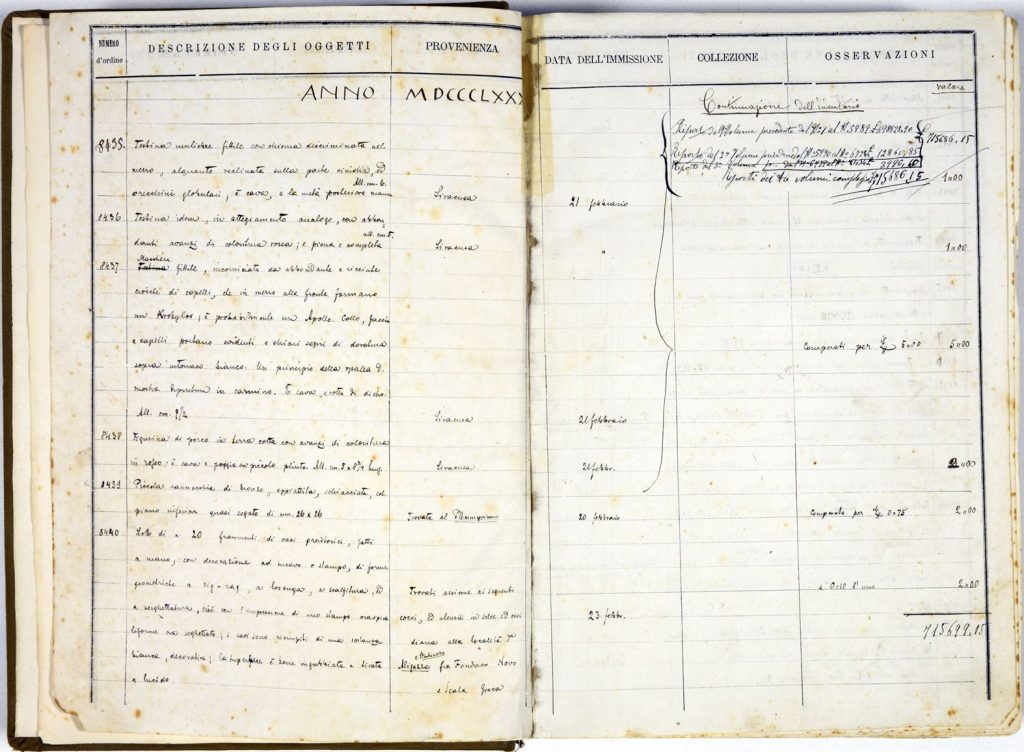 NUMERO d'ordine
DESCRIZIONE DEGLI OGGETTI
PROVENIENZA
ANNO MDCCCLXXX
8435. Testina muliebre fittile con chioma discriminata nel
mezzo, alquanto reclinata sulla parte sinistra, ed
All. cm. 6.
orecchini globulari; è cava, e la metà posteriore manca
Siracusa
8436 Testina idem, in atteggiamento analogo, con abbon
all. cm. 5.
danti avanzi di coloritura rosea; è piena e completa
Siracusa
Maschera
8437 Testina fittile, incorniciata da abbondante e ricciute
ciocche di capelli, che in mezzo alla fronte formano
un Krobylos; è probabilmente un Apollo. Collo, faccia
e capelli portano evidenti e chiari segni di doratura
sopra intonaco bianco. Un principio della spalla D.
mostra dipintura in carmino. È cava, e rotta di dietro.
All. cm. 9 1/2
Siracusa
8438 Figurina di porco in terra cotta con avanzi di coloritura
in roseo; è cava e poggia su piccolo plinto. All. cm. 5 x 8 lung.
Siracusa
8439 Piccola ranocchia di bronzo, appiattita, schiacciata, col
piano inferiore quasi segato di mm. 26 x 26
Trovata al Plemmyrium
8440 Lotto di n. 20 frammenti di vasi preistorici, fatti
a mano, con decorazione ad incavo o stampo, di forme
geometriche a zig-zag, a losanga, a scalfitura, ed
Trovati assieme ai seguenti
a verghettatura, cioè con l'impressione di uno stampo
cocci, ed utensili in selce ed ossi
liforme ora seghettato; i cavi sono riempiti di una sostanza
diana alla località
bianca, decorativa; la superficie è bene ingubbiata e tirata
fra Fondaco Novo
a lucido
e Scala Greca
DATA DELL'IMMISSIONE
COLLEZIONE
OSSERVAZIONI
Valore
Continuazione dell'inventario
Riporto del 1° Volume precedente dal N° 1 al N. 5989 £
715686,15
Riporto del 2° Volume precedente dal N° 5990 al N° £ 12860,85
Riporto del 3° Volume
Riporti dei tre volumi complessivi £ 715686,15
21 febbraio
1 00
"
1 00
Comperati per £ 5 00
5 00
21 febbraio
21 febbr.
2 00
20 febbraio
Comperata per £ 0 75
2 00
a 0 10 l'uno
2 00
23 febbr.
715699,15